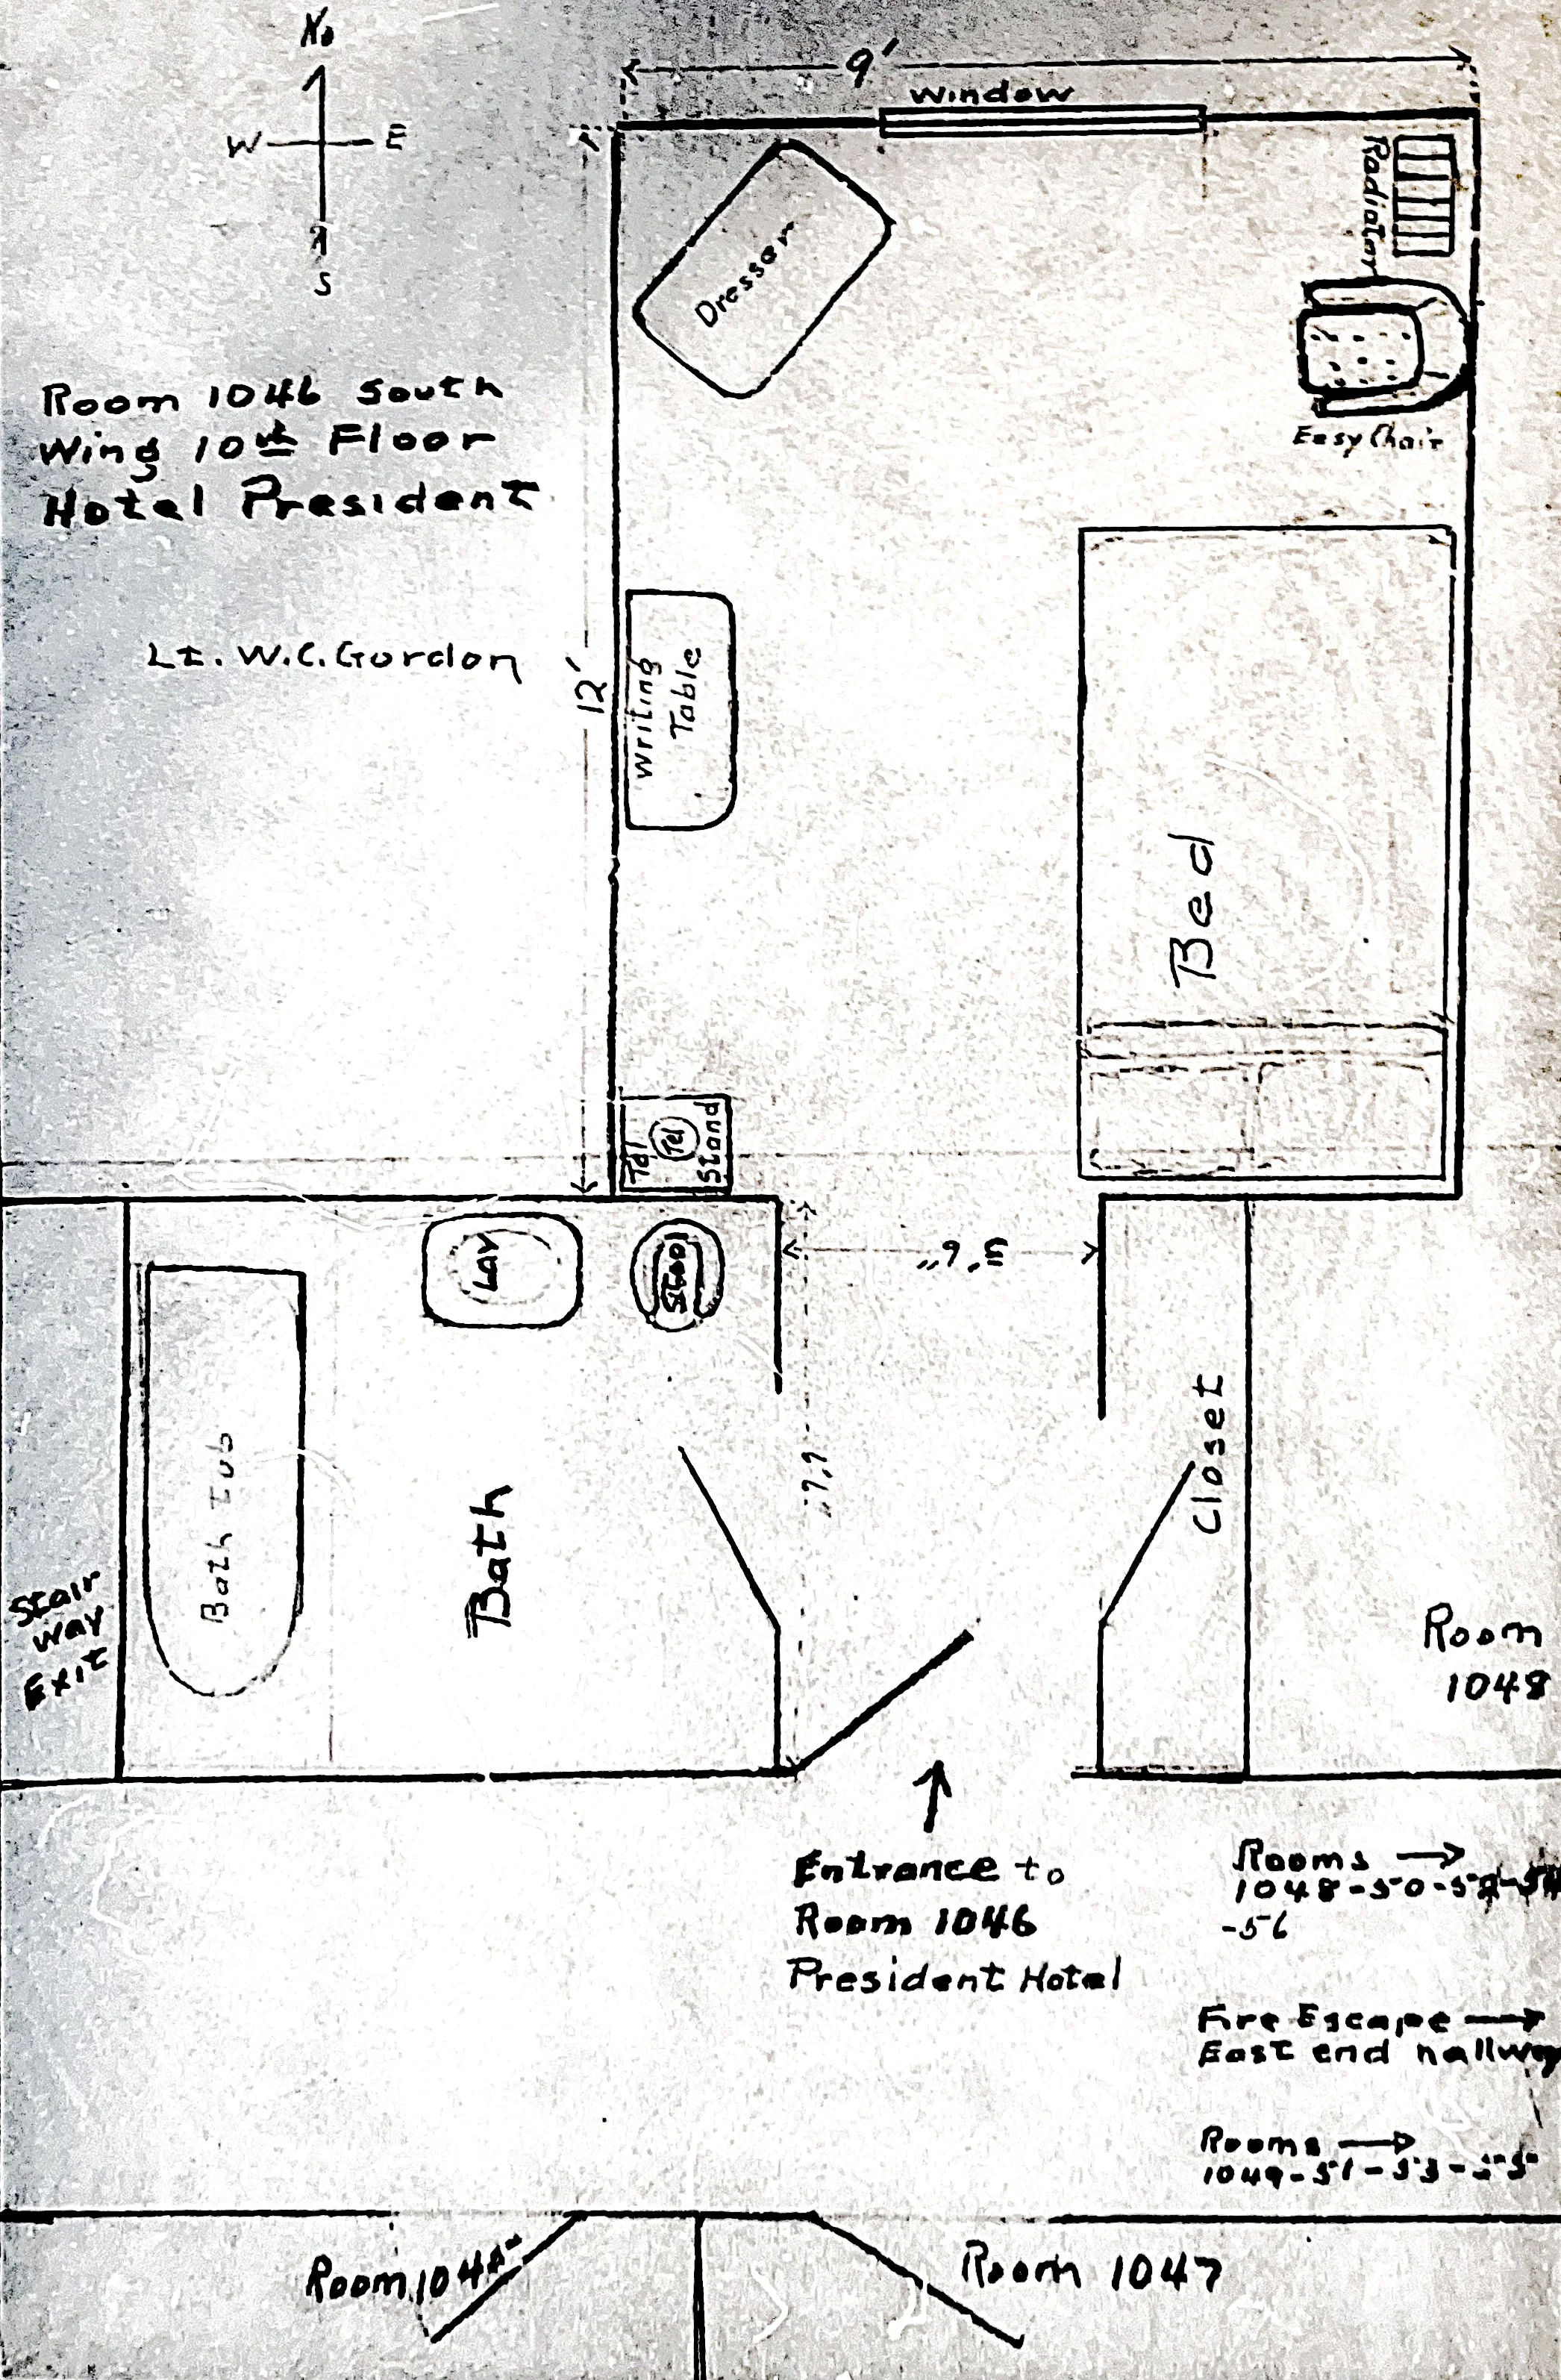 No
W E
S
9'
Window
Radiator
Dresser
Easy Chair
Room 1046 South
Wing 10th Floor
Hotel President
Lt. W.C. Gordon
12'
Writing
Table
Bed
Tel
Tel
Stand
Lav
Stool
3' 6"
6' 6"
Bath Tub
Bath
Closet
Stair
way
Exit
Room
1048
Entrance to
Room 1046
President Hotel
Rooms
1048-50-52-54
-56
Fire Escape
East end hallway
Rooms
1049-51-53-55
Room 1047
Room